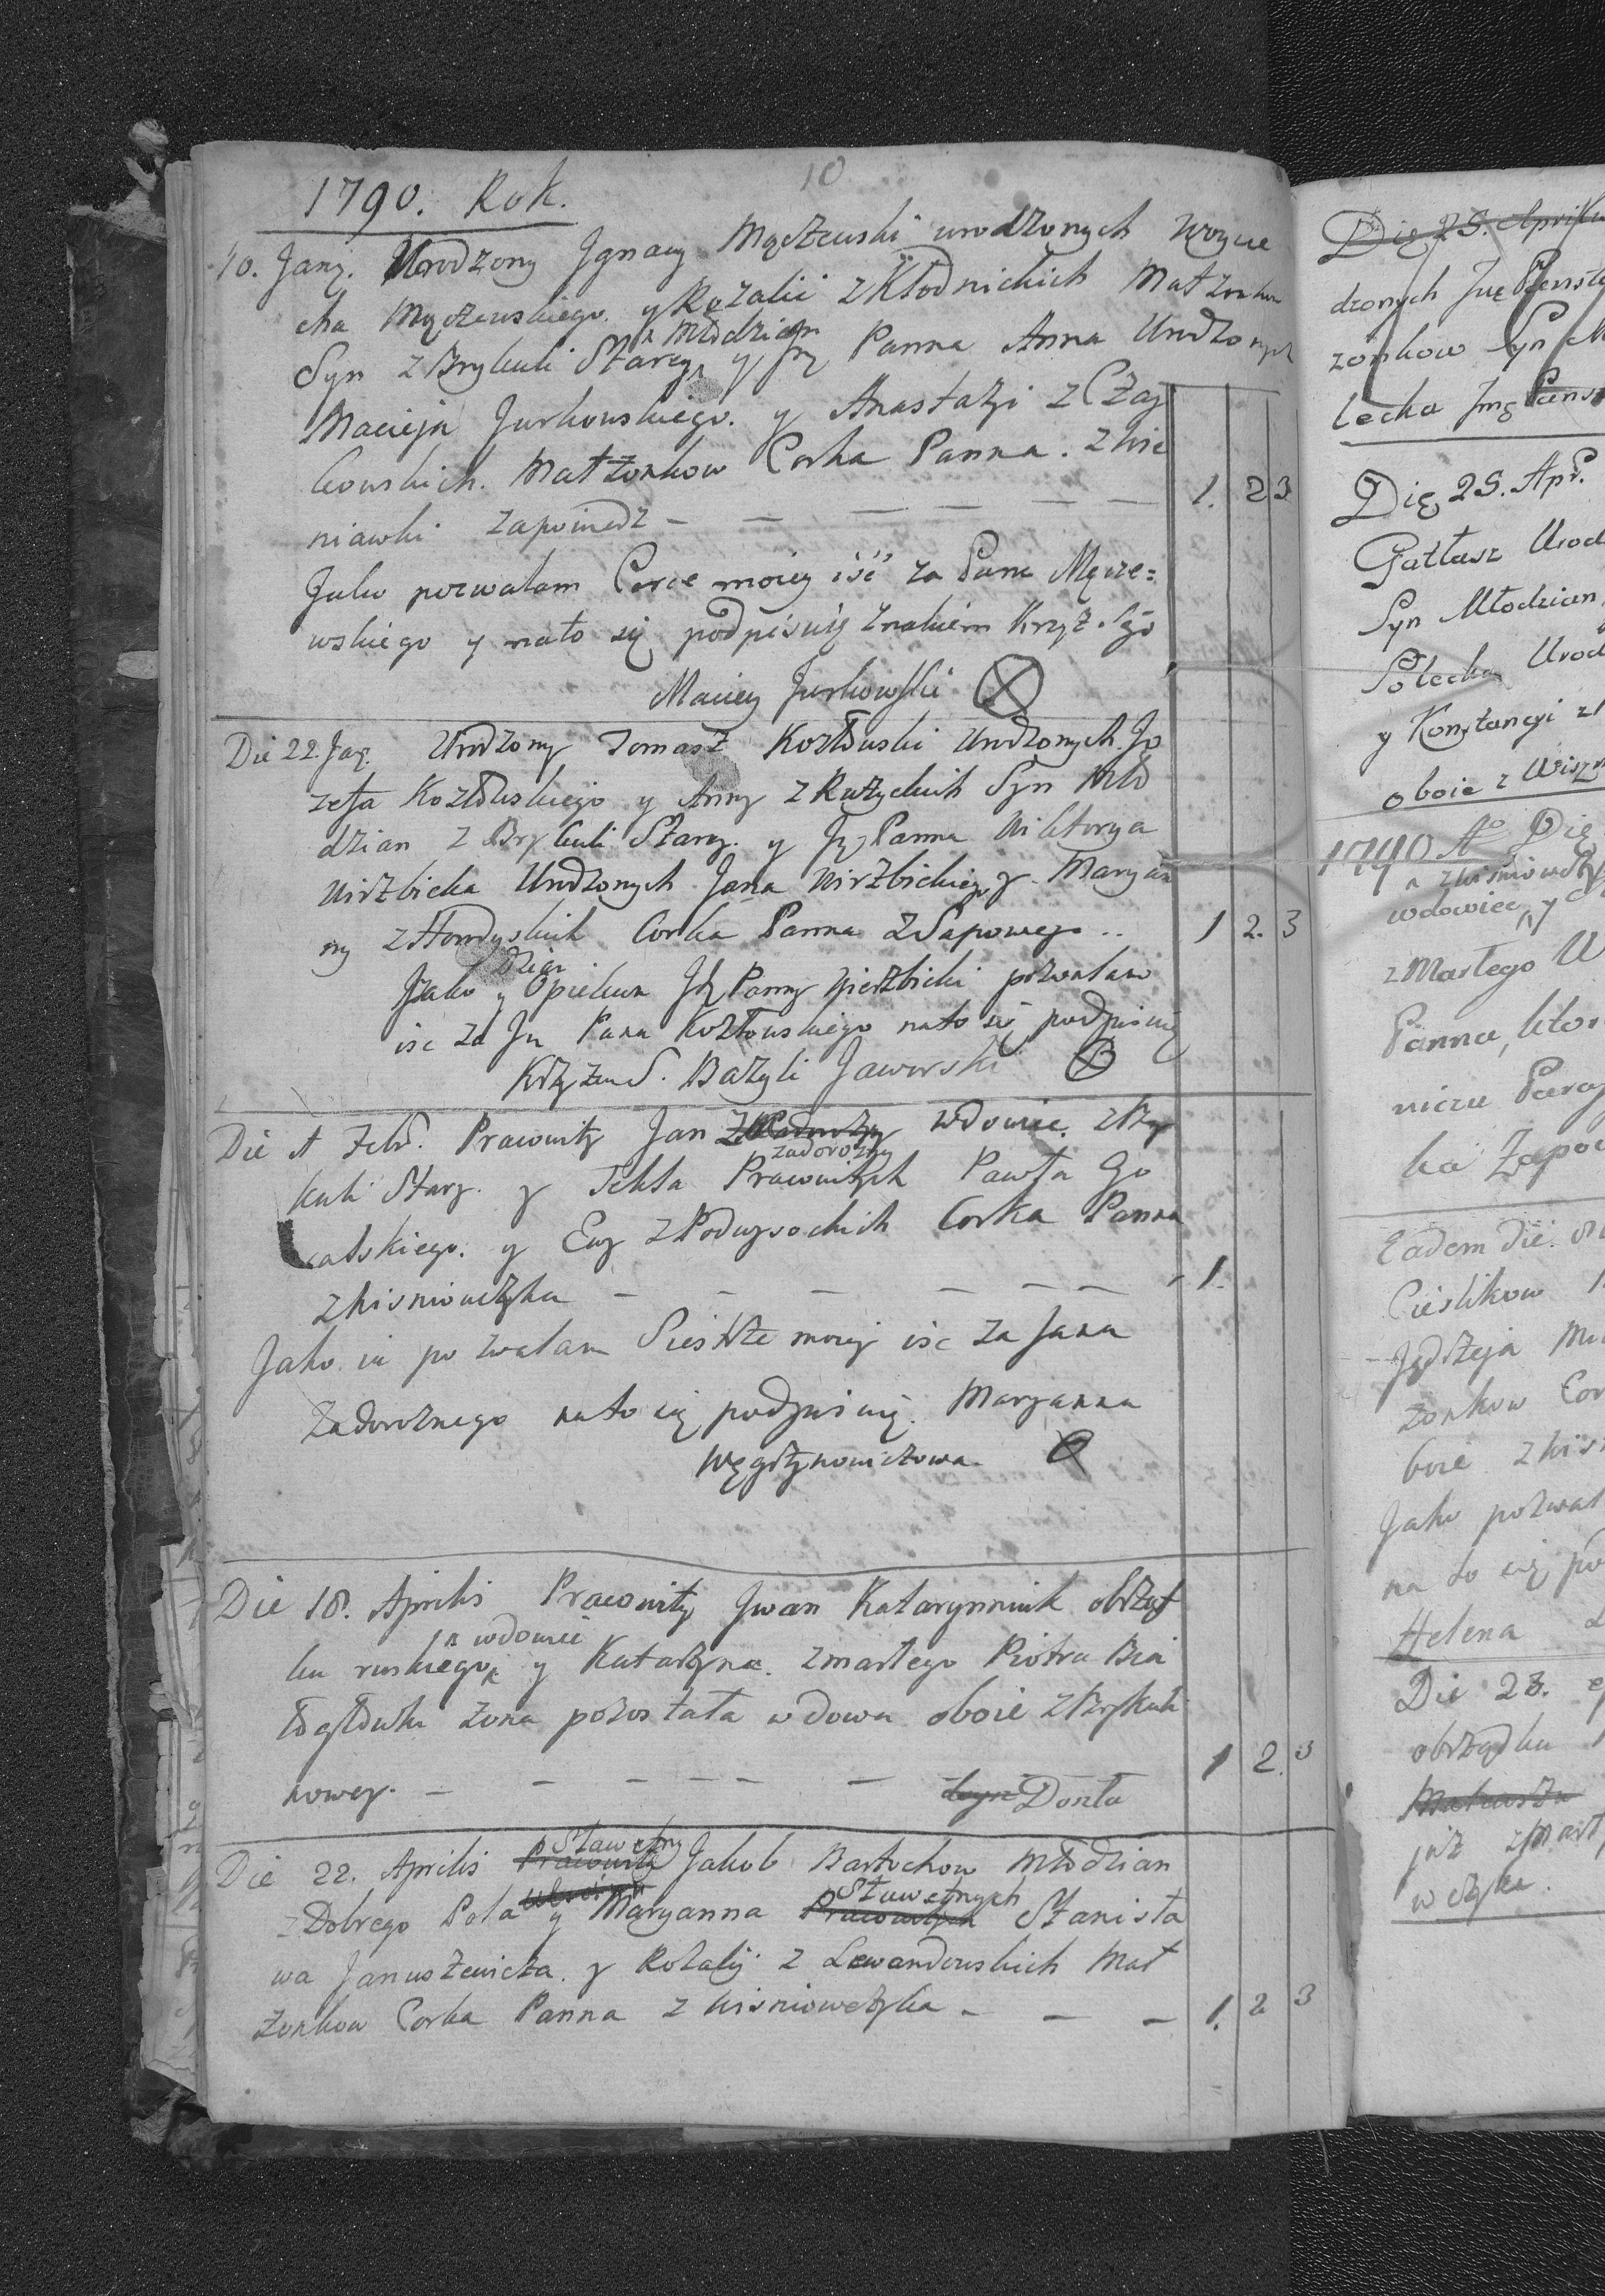 10
1790. Rok.
10. Janÿ. Urodzony Jgnacy Mączewski urodzonych Woycie
cha Mączewskiego. y Rozalii z Kłodnickich Małzonkow
Młodzian
Syn z Brykuli Starey y Jey Panna Anna Urodzonych
Macieja Jurkowskiego. y Anastazyi z Czay
kowskich. Małzonkow Corka Panna. z Wis
niawki zapowiedz – – – – – – 1. 2 3
Jako pozwalam Corce moiey iść za Pana Mącze=
wskiego y nato się podpisuię znakiem Krzyż. Sgo
Maciey Jurkowski
Die 22. Jaȝ. Urodzony Tomasz Kozłowski Urodzonych. Jo
zefa Kozłowskiego y Anny z Ruzyckich Syn Mło
dzian z Brykuli Starey. y Jey Panna Wiktorya
Wirzbicka Urodzonych Jana Wirzbickiego y. Maryan
ny z Corka Panna z Sapowego .. 1 2. 3
Dziad
Jako y Opiekun Panny Wierzbicki pozwalam
isc za Pana Kozłowskiego nato się podpisuię
Krzyzem S. Bazyli Jaworski
Die 1 Febr. Pracowity Jan wdowiec. z Bry
zadorozny
kuli Starey. y Tekla Pracowitych Pawła Go
ralskiego. y Ewy z Podwysockich Corka Panna
z Wisniowczyka – – – – – – 1.
Jako ia pozwalam Siestrze moiey isc za Jana
Zadoroznego nato się podpisuię. Maryanna
Węgrzynowiczowa
Die 18. Aprilis Pracowity Jwan Katarynniuk obrząd
wdowiec
ku ruskiego y Katarzyna. zmarłego Piotra Bia
łogłowki zona pozostała wdowa oboie z Brykuli
nowey. – – – – – – – 1 2. 3
Donta
Sławetny
Die 22. Aprilis Pracowity Jakob Bartochow Młodzian
Sławetnych
z Dobrego Pola y Maryanna Pracowitych Stanisła
wa Januszewicza. y Rozalij z Lewandowskich Mał
zonkow Corka Panna z Wisniowczyka – – – 1. 2 3
Die 25. Aprilis
dzonych
zonkow Syn
lecka
Die 25. Apr.
Gałłasz Urod
Syn Młodzian
Polecka Urod
y Konstancyi z
oboie z Wiszn
1790 Aº Die
z Wisniowczyka
wdowiec y
z Marłego W
Panna, ktor
nicza Paraf
ka Zapow
Eadem die.
Cieslikow
Jędrzeja
zonkow Cor
boie z Wis
Jako pozwal
na to się po
Helena
Die 28.
obrządku
już zmarł
wczyka.